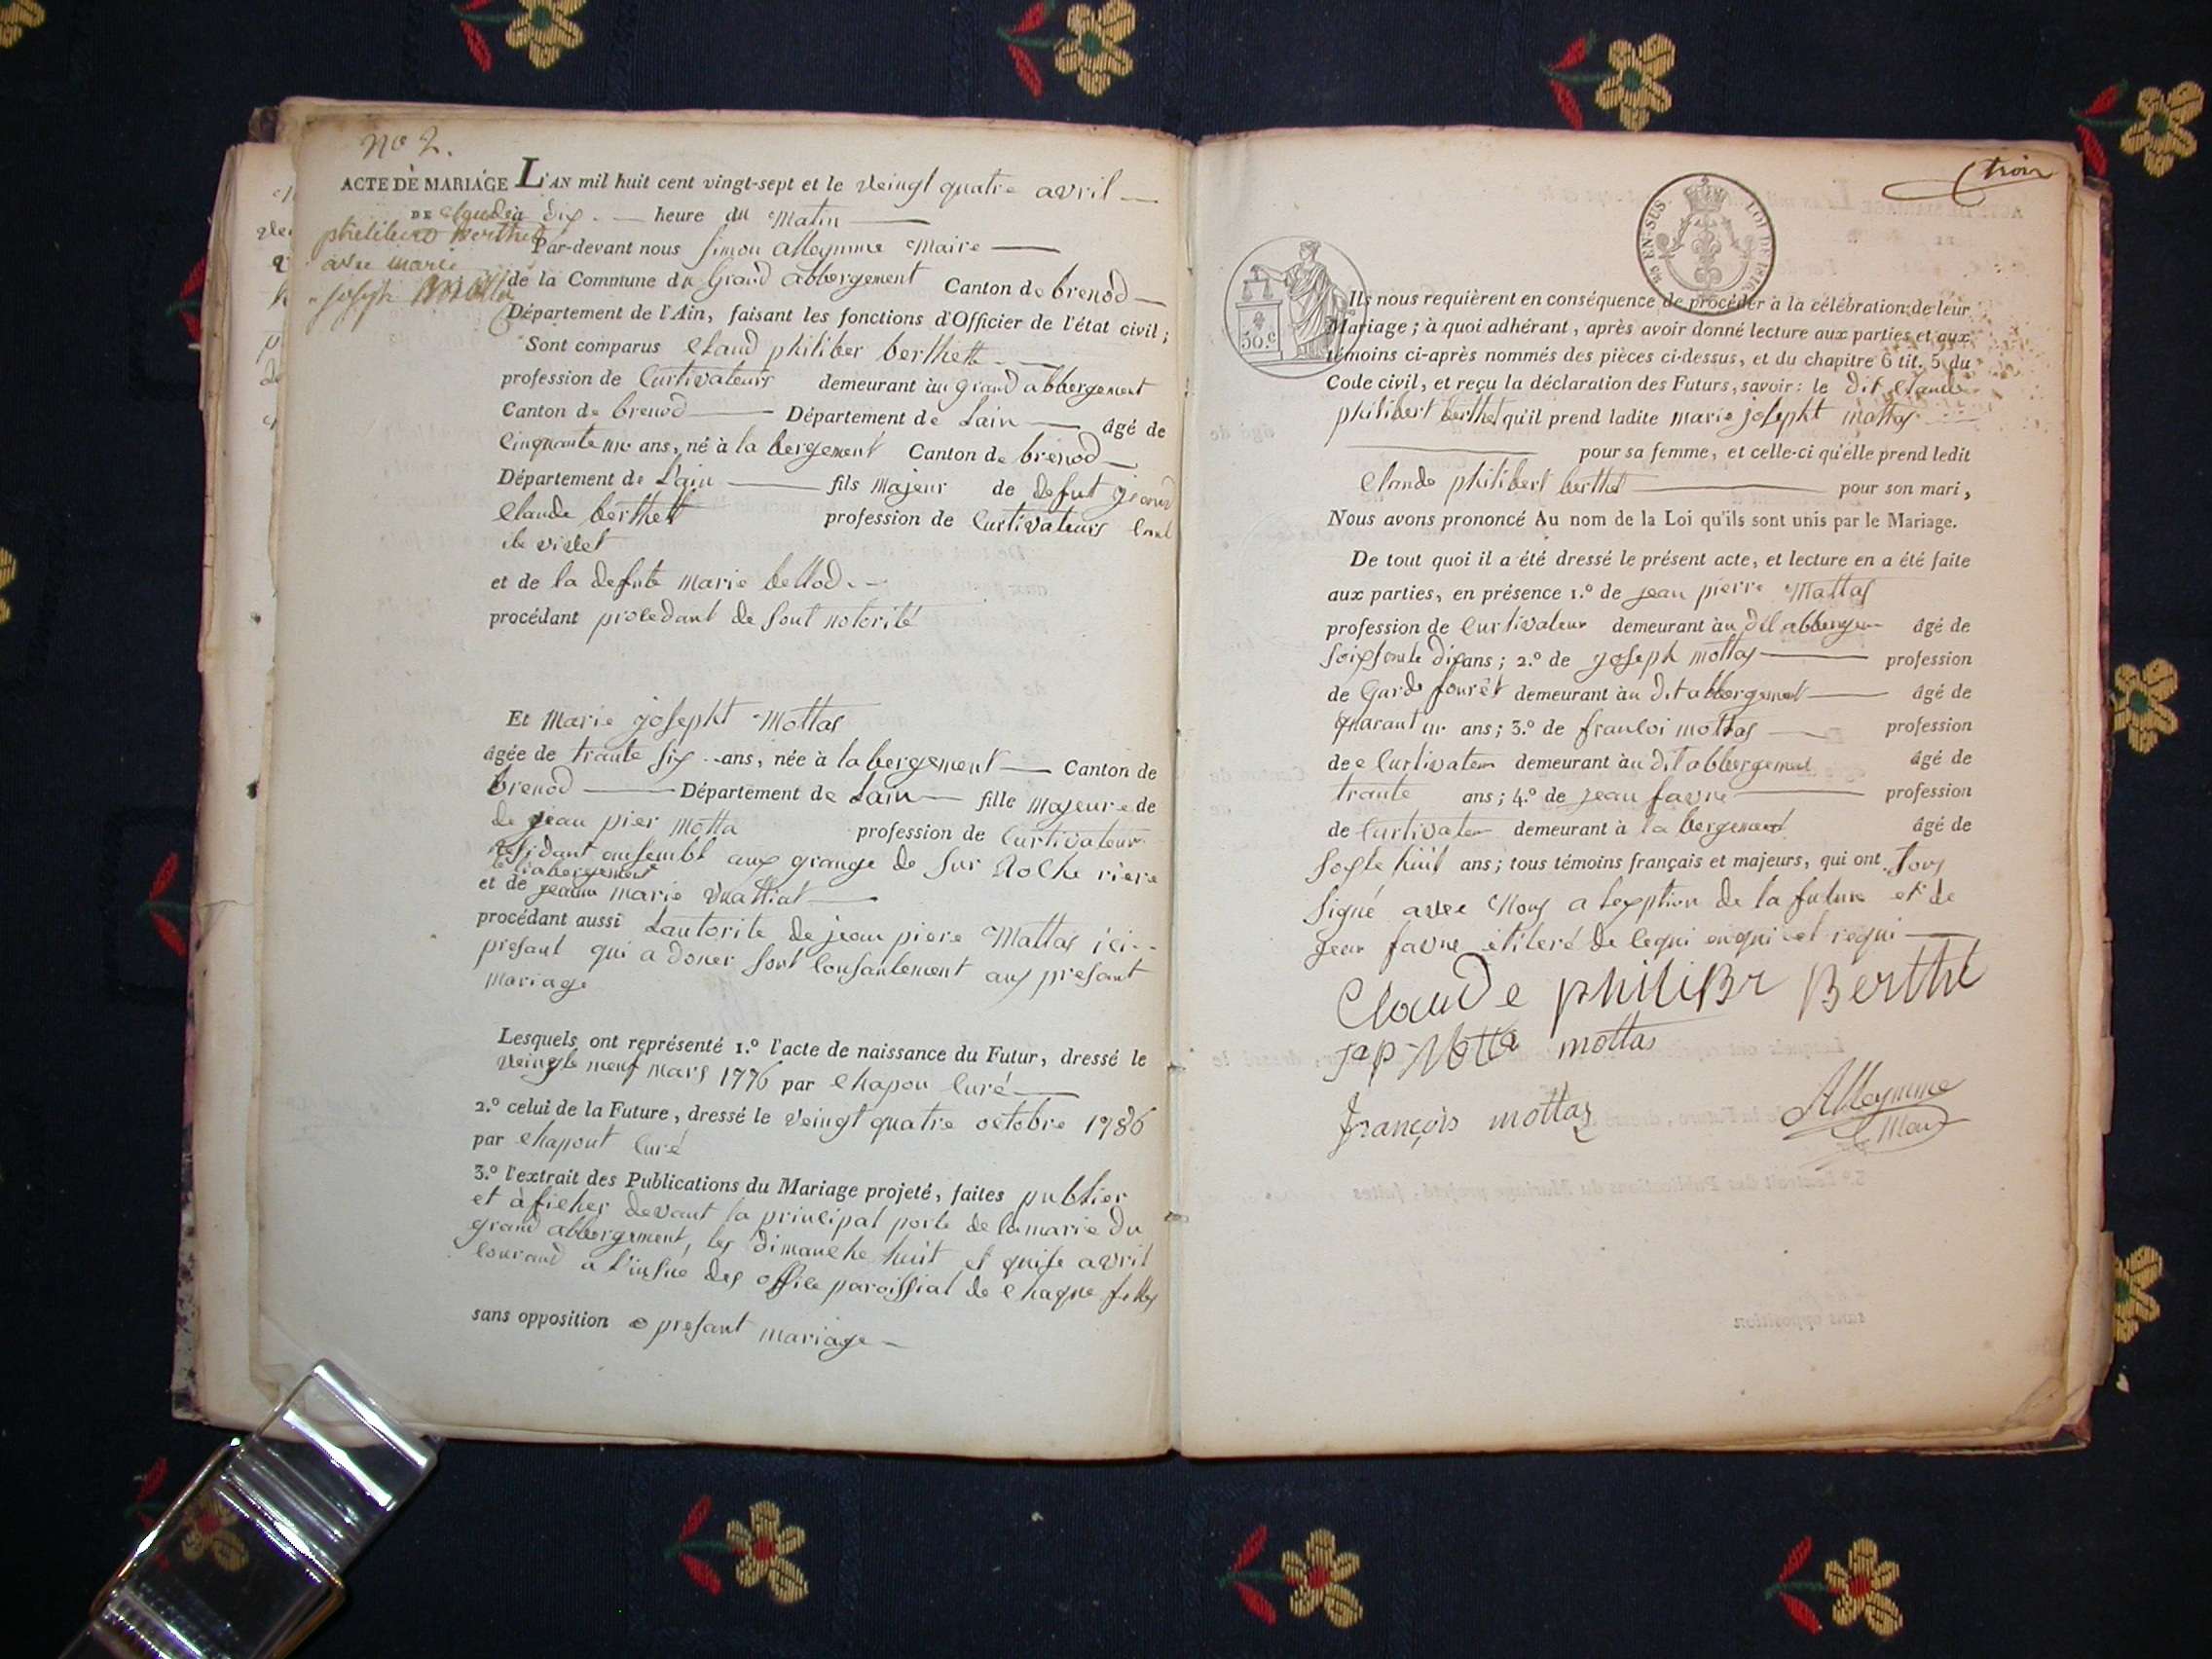 No 2.
ACTE DE MARIAGE
DE Claude
philibert Berthet
avec marie
joseph Mottas
L'AN mil huit cent vingt-sept et le veingt quatre avril
à dix heure du Matin
Par-devant nous Simon alleymme Maire
de la Commune du Grand abbergement Canton de brenod
Département de l'Ain, faisant les fonctions d'Officier de l'état civil;
Sont comparus Claud philiber berthett
profession de Curtivateurs demeurant àu grand abbergement
Canton de brenod Département de Lain âgé de
Cinquante un ans, né à la bergement Canton de brenod
Département de Lain fils majeur de defut
Claude berthett profession de Curtivateurs
et de la defute marie bellod
procédant procedant de sout notorité
Et Marie josepht Mottas
âgée de trante six ans, née à la bergement Canton de
brenod Département de Lain fille majeure de
de jean pier Motta profession de Curtivateur
résidant ensembl aux grange de sur Roche riere
l'abergement
et de jeanne marie
procédant aussi Lautorite de jean piere Mattas ici
presant qui a doner sont Consantement aux presant
mariage
Lesquels ont représenté 1.º l'acte de naissance du Futur, dressé le
veingte neuf mars 1776 par Chapon Curé
2.º celui de la Future, dressé le veingt quatre octobre 1786
par Chapout Curé
3.º l'extrait des Publications du Mariage projeté, faites publier
et àficher devant la principal porte de la marie du
grand abbergement, les dimanche huit et quise avril
Courand a l'insue des office paroissial de Chaque
sans opposition presant mariage
trois
45 EN SUS. LOI DE 1816
50.c
Ils nous requièrent en conséquence de procéder à la célébration de leur
Mariage; à quoi adhérant, après avoir donné lecture aux parties et aux
témoins ci-après nommés des pièces ci-dessus, et du chapitre 6 tit. 5 du
Code civil, et reçu la déclaration des Futurs, savoir: le dit Claude
philibert berthet qu'il prend ladite marie josepht mottas
pour sa femme, et celle-ci qu'elle prend ledit
Claude philibert berthet pour son mari,
Nous avons prononcé Au nom de la Loi qu'ils sont unis par le Mariage.
De tout quoi il a été dressé le présent acte, et lecture en a été faite
aux parties, en présence 1.º de jean pierre Mattas
profession de Curtivateur demeurant àu dit âgé de
soissente dix ans; 2.º de joseph mottas profession
de Garde fourêt demeurant àu dit abbergement âgé de
quarant un ans; 3.º de francoi mottas profession
de Curtivateur demeurant àu dit abbergement âgé de
trante ans; 4.º de jean favre profession
de Curtivateur demeurant à la bergement âgé de
huit ans; tous témoins français et majeurs, qui ont Tous
signé avec Nous a lexption de la future et de
jean favre
Claude philiBr Berthé
Motta mottas
françois mottas
Alleymme
Maire